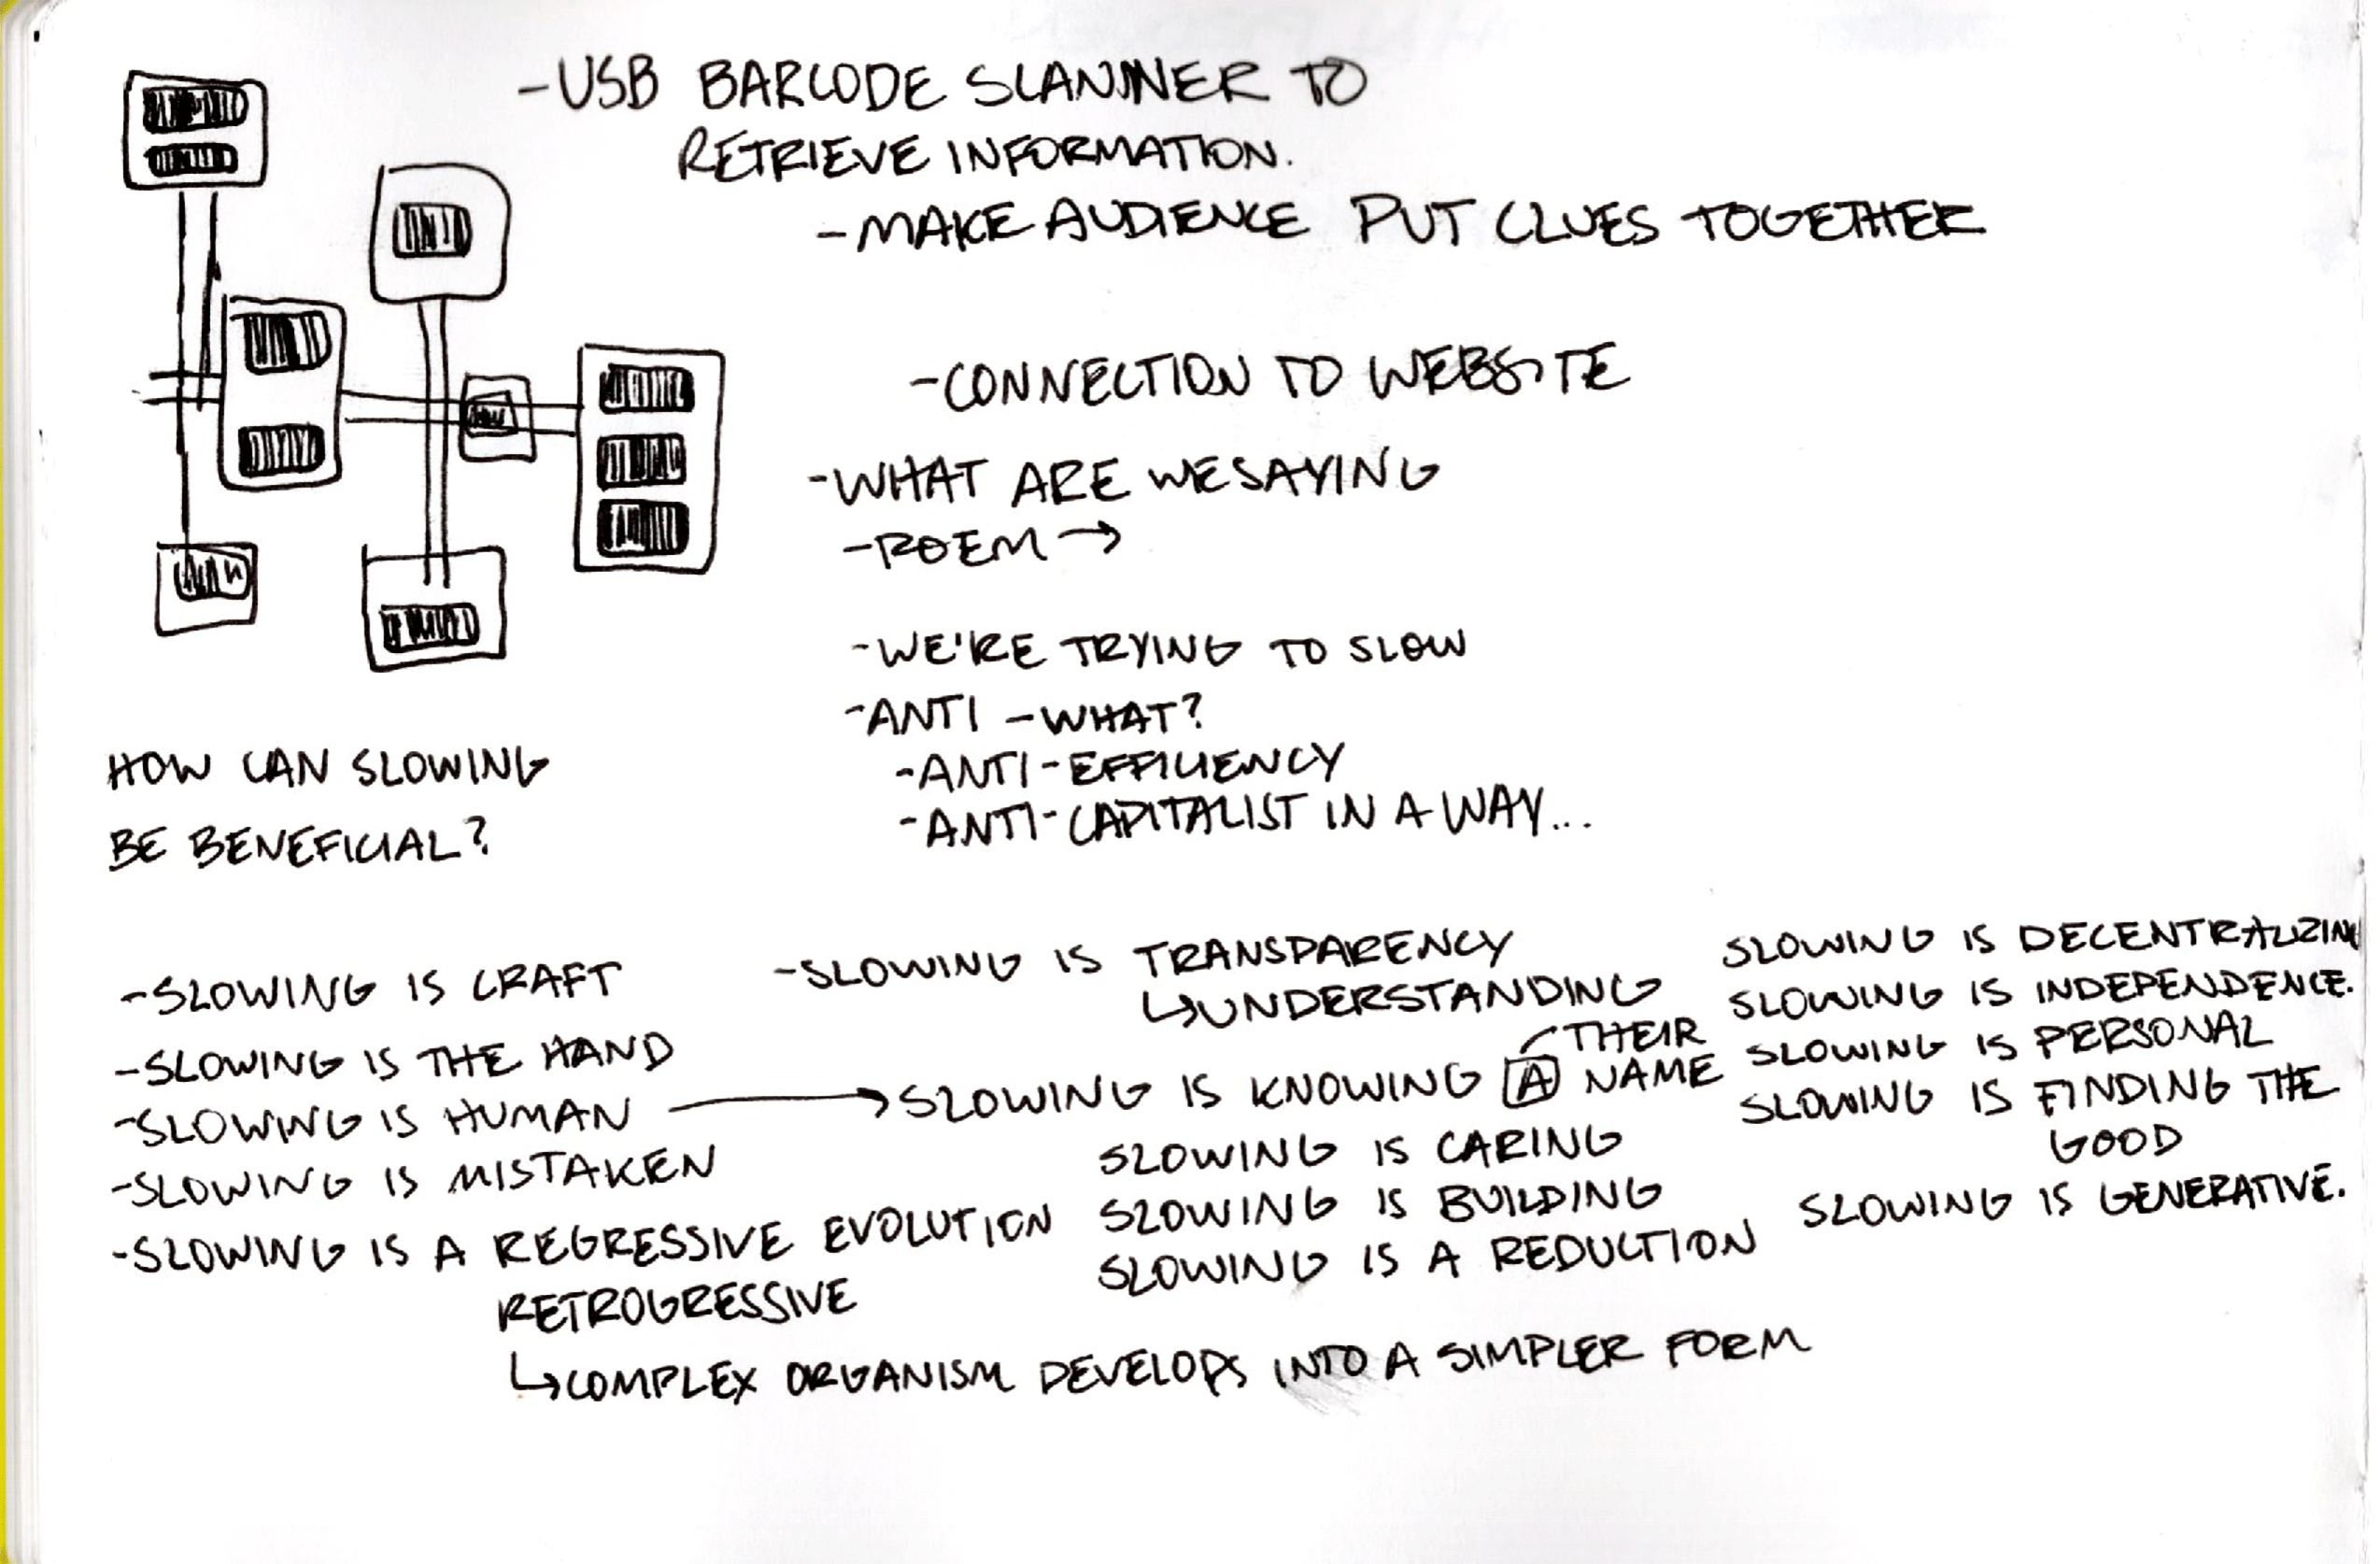 -USB BARCODE SCANNER TO
RETRIEVE INFORMATION.
-MAKE AUDIENCE PUT CLUES TOGETHER
-CONNECTION TO WEBSITE
-WHAT ARE WE SAYING
-POEM →
-WE'RE TRYING TO SLOW
-ANTI -WHAT?
-ANTI-EFFICIENCY
-ANTI-CAPITALIST IN A WAY...
HOW CAN SLOWING
BE BENEFICIAL?
-SLOWING IS CRAFT
-SLOWING IS THE HAND
-SLOWING IS HUMAN
-SLOWING IS MISTAKEN
-SLOWING IS A REGRESSIVE EVOLUTION
RETROGRESSIVE
↳COMPLEX ORGANISM DEVELOPS INTO A SIMPLER FORM
-SLOWING IS TRANSPARENCY
↳UNDERSTANDING
THEIR
→SLOWING IS KNOWING A NAME
SLOWING IS CARING
SLOWING IS BUILDING
SLOWING IS A REDUCTION
SLOWING IS DECENTRALIZING
SLOWING IS INDEPENDENCE.
SLOWING IS PERSONAL
SLOWING IS FINDING THE
GOOD
SLOWING IS GENERATIVE.